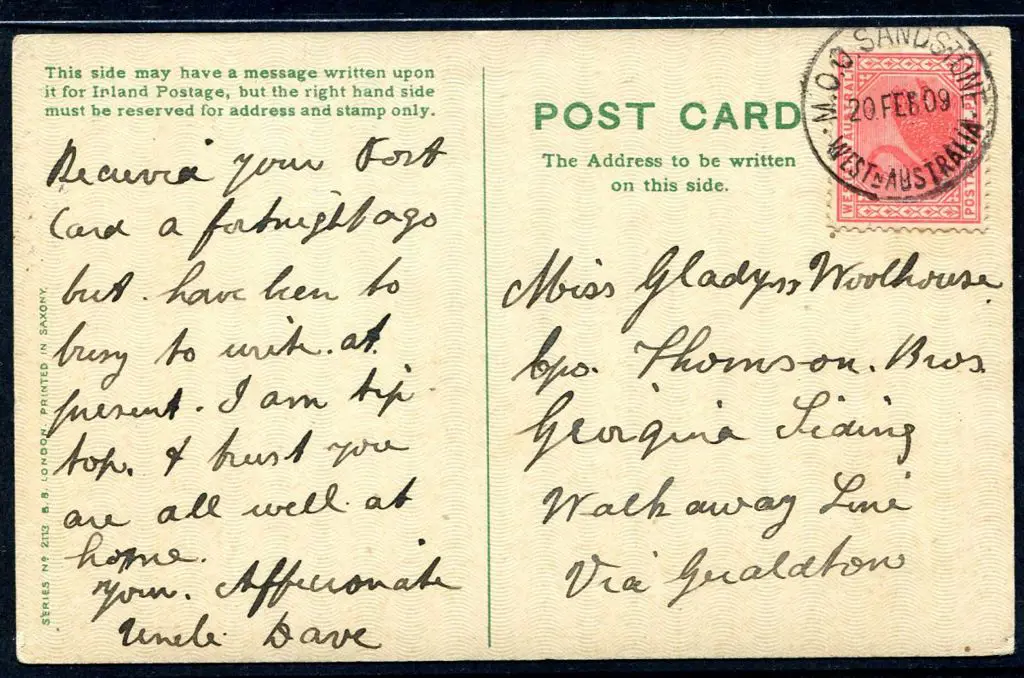 This side may have a message written upon
it for Inland Postage, but the right hand side
must be reserved for address and stamp only.
Received your Post
Card a fortnight ago
but have been to
busy to write at
present. I am tip
top. & trust you
are all well at
home.
Your Affecionate
Uncle Dave
SERIES No 2113 B.B. LONDON. PRINTED IN SAXONY.
POST CARD
The Address to be written
on this side.
M.O.O SANDSTONE
20 FEB 09
WESTN AUSTRALIA
Miss Gladys Woolhouse
c/o. Thomson. Bros.
Georgina Siding
Walkaway Line
Via Geraldton